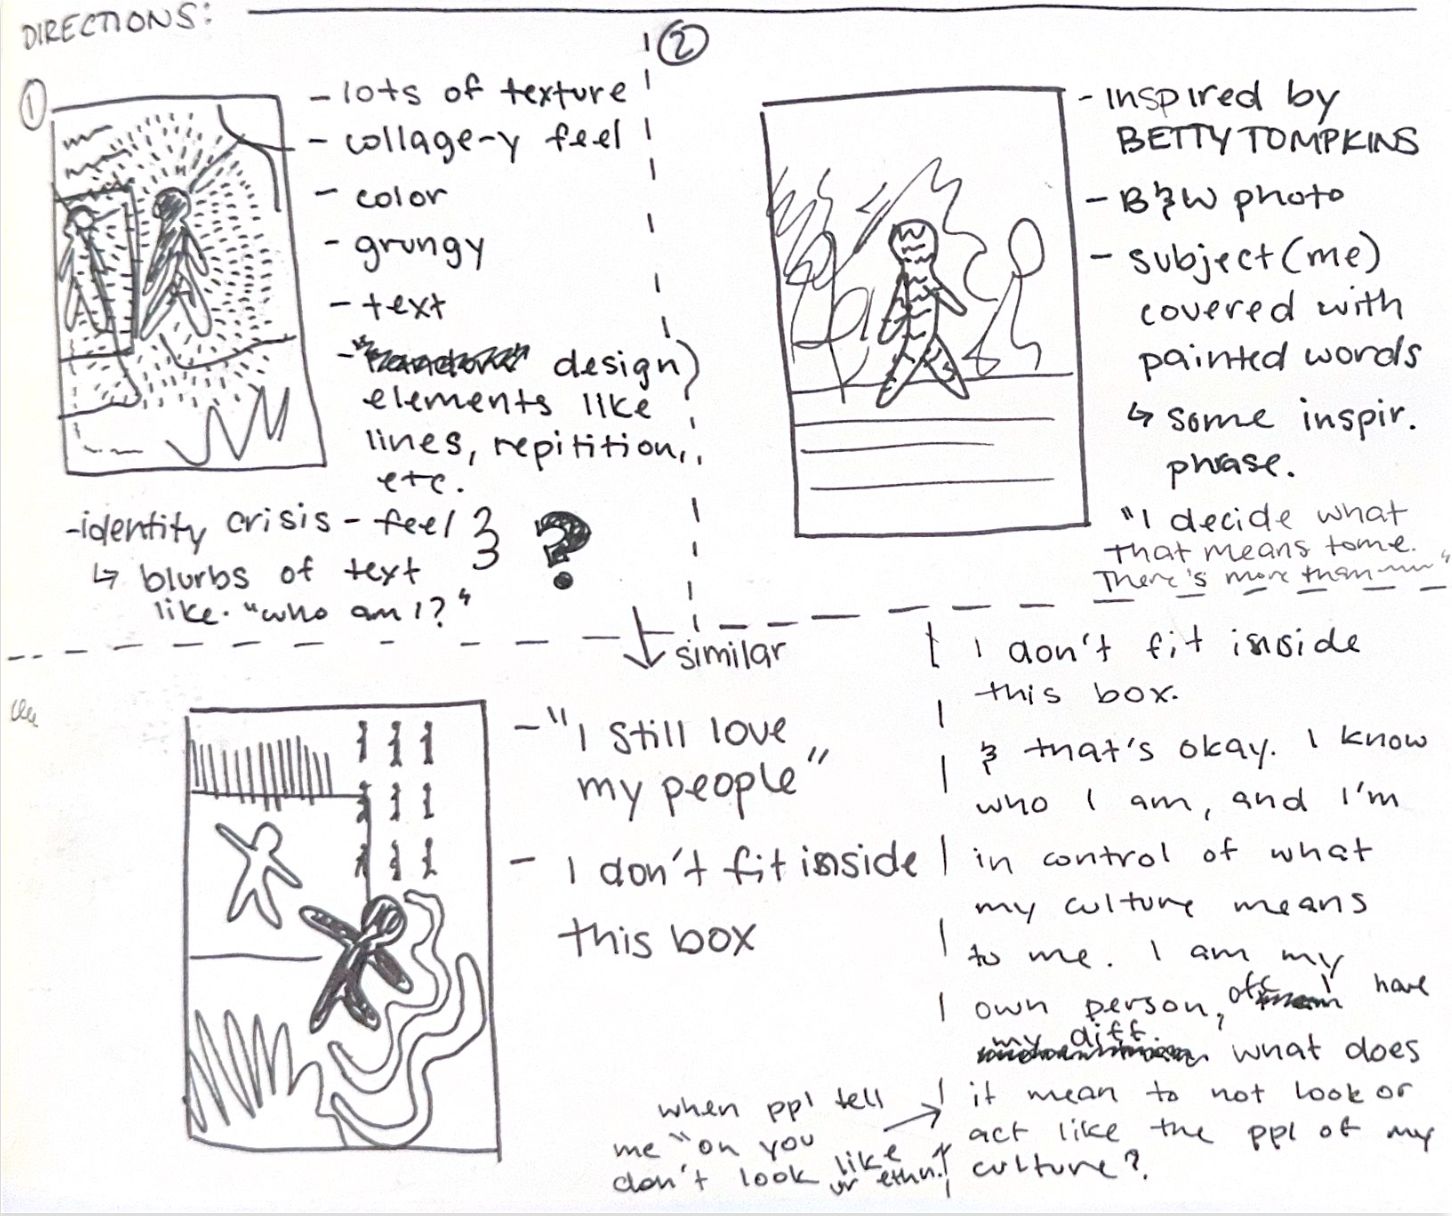 DIRECTIONS:
①
- lots of texture
- collage-y feel
- color
- grungy
- text
- design
elements like
lines, repitition,
etc.
- identity crisis - feel
↳ blurbs of text
like "who am I?"
?
②
- inspired by
BETTY TOMPKINS
- B&W photo
- subject (me)
covered with
painted words
↳ some inspir.
phrase.
"I decide what
that means to me.
There's more than
similar
- "I still love
my people"
- I don't fit inside
this box
I don't fit inside
this box.
& that's okay. I know
who I am, and I'm
in control of what
my culture means
to me. I am my
own person, I have
my diff.
what does
it mean to not look or
act like the ppl of my
culture?
when ppl tell
me "oh you
don't look like
ur ethn."